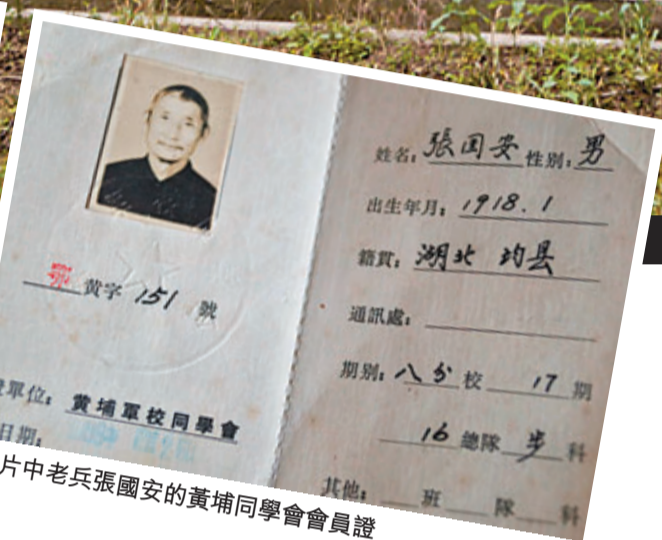 鄂 黃字 151 號
證單位：黃埔軍校同學會
日期：
姓名：張国安 性别：男
出生年月：1918.1
籍貫：湖北 均县
通訊處：
期别：八分校 17期
16總隊 步科
其他： 班 隊 科
片中老兵張國安的黃埔同學會會員證